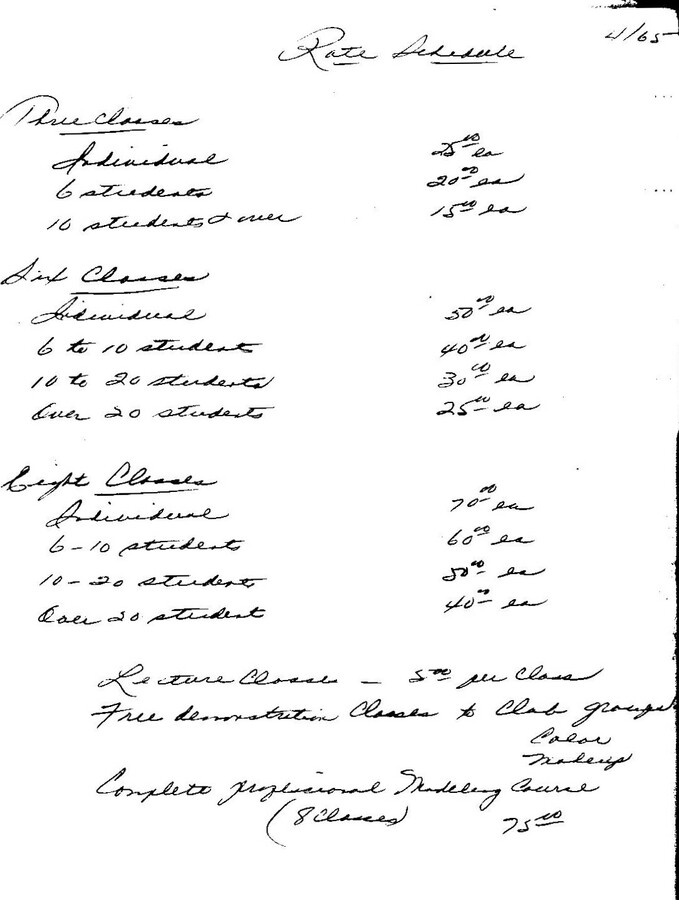 4/65
Rate Schedule
Three Classes
Individual 25.00 ea
6 students 20.00 ea
10 students & over 15.00 ea
Six Classes
Individual 50.00 ea
6 to 10 students 40.00 ea
10 to 20 students 30.00 ea
Over 20 students 25.00 ea
Eight Classes
Individual 70.00 ea
6-10 students 60.00 ea
10-20 students 50.00 ea
Over 20 student 40.00 ea
Lecture Classes - 5.00 per Class
Free demonstration Classes to Club groups
Color
Makeup
Complete professional Modeling Course
(8 Classes) 75.00